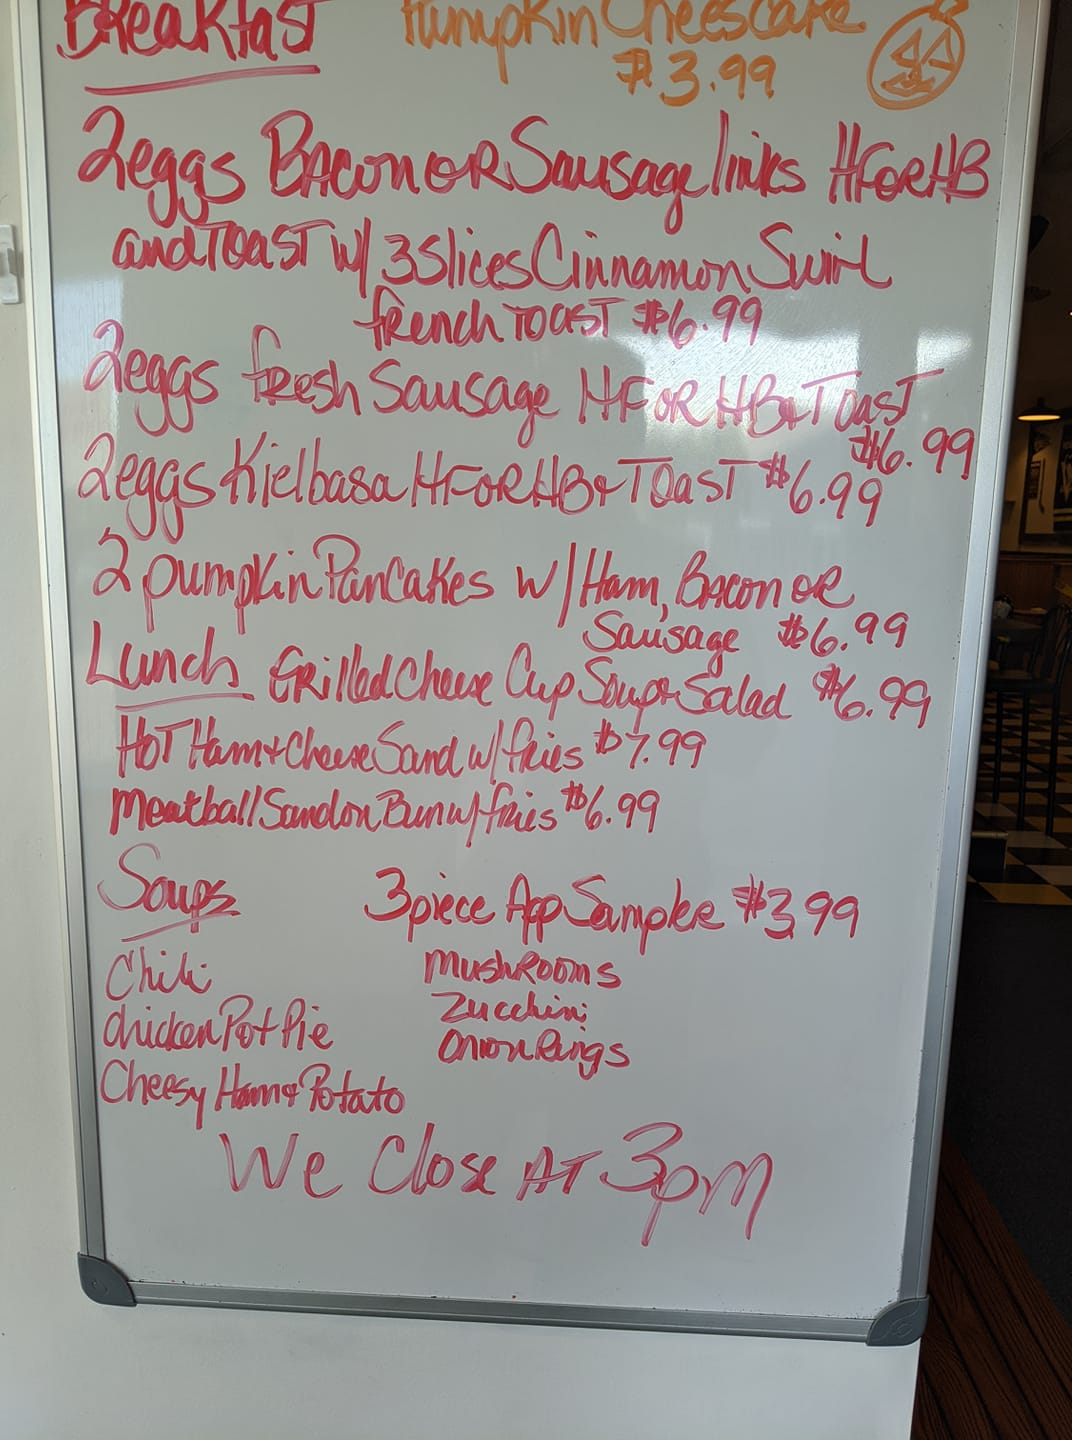 Breakfast
Pumpkin Cheesecake
$3.99
2eggs Bacon OR Sausage links HF OR HB
and TOAST w/ 3 Slices Cinnamon Swirl
french TOAST $6.99
2eggs fresh Sausage HF OR HB & TOAST
$6.99
2eggs Kielbasa HF OR HB & TOAST $6.99
2 pumpkin Pancakes w/ Ham, Bacon OR
Sausage $6.99
Lunch Grilled Cheese Cup Soup & Salad $6.99
HOT Ham & Cheese Sand w/ fries $7.99
Meatball Sand on Bun w/ fries $6.99
Soups
3 piece App Sampler $3.99
Chili
Chicken Pot Pie
Cheesy Ham & Potato
MushRooms
Zucchini
Onion Rings
We Close AT 3pm